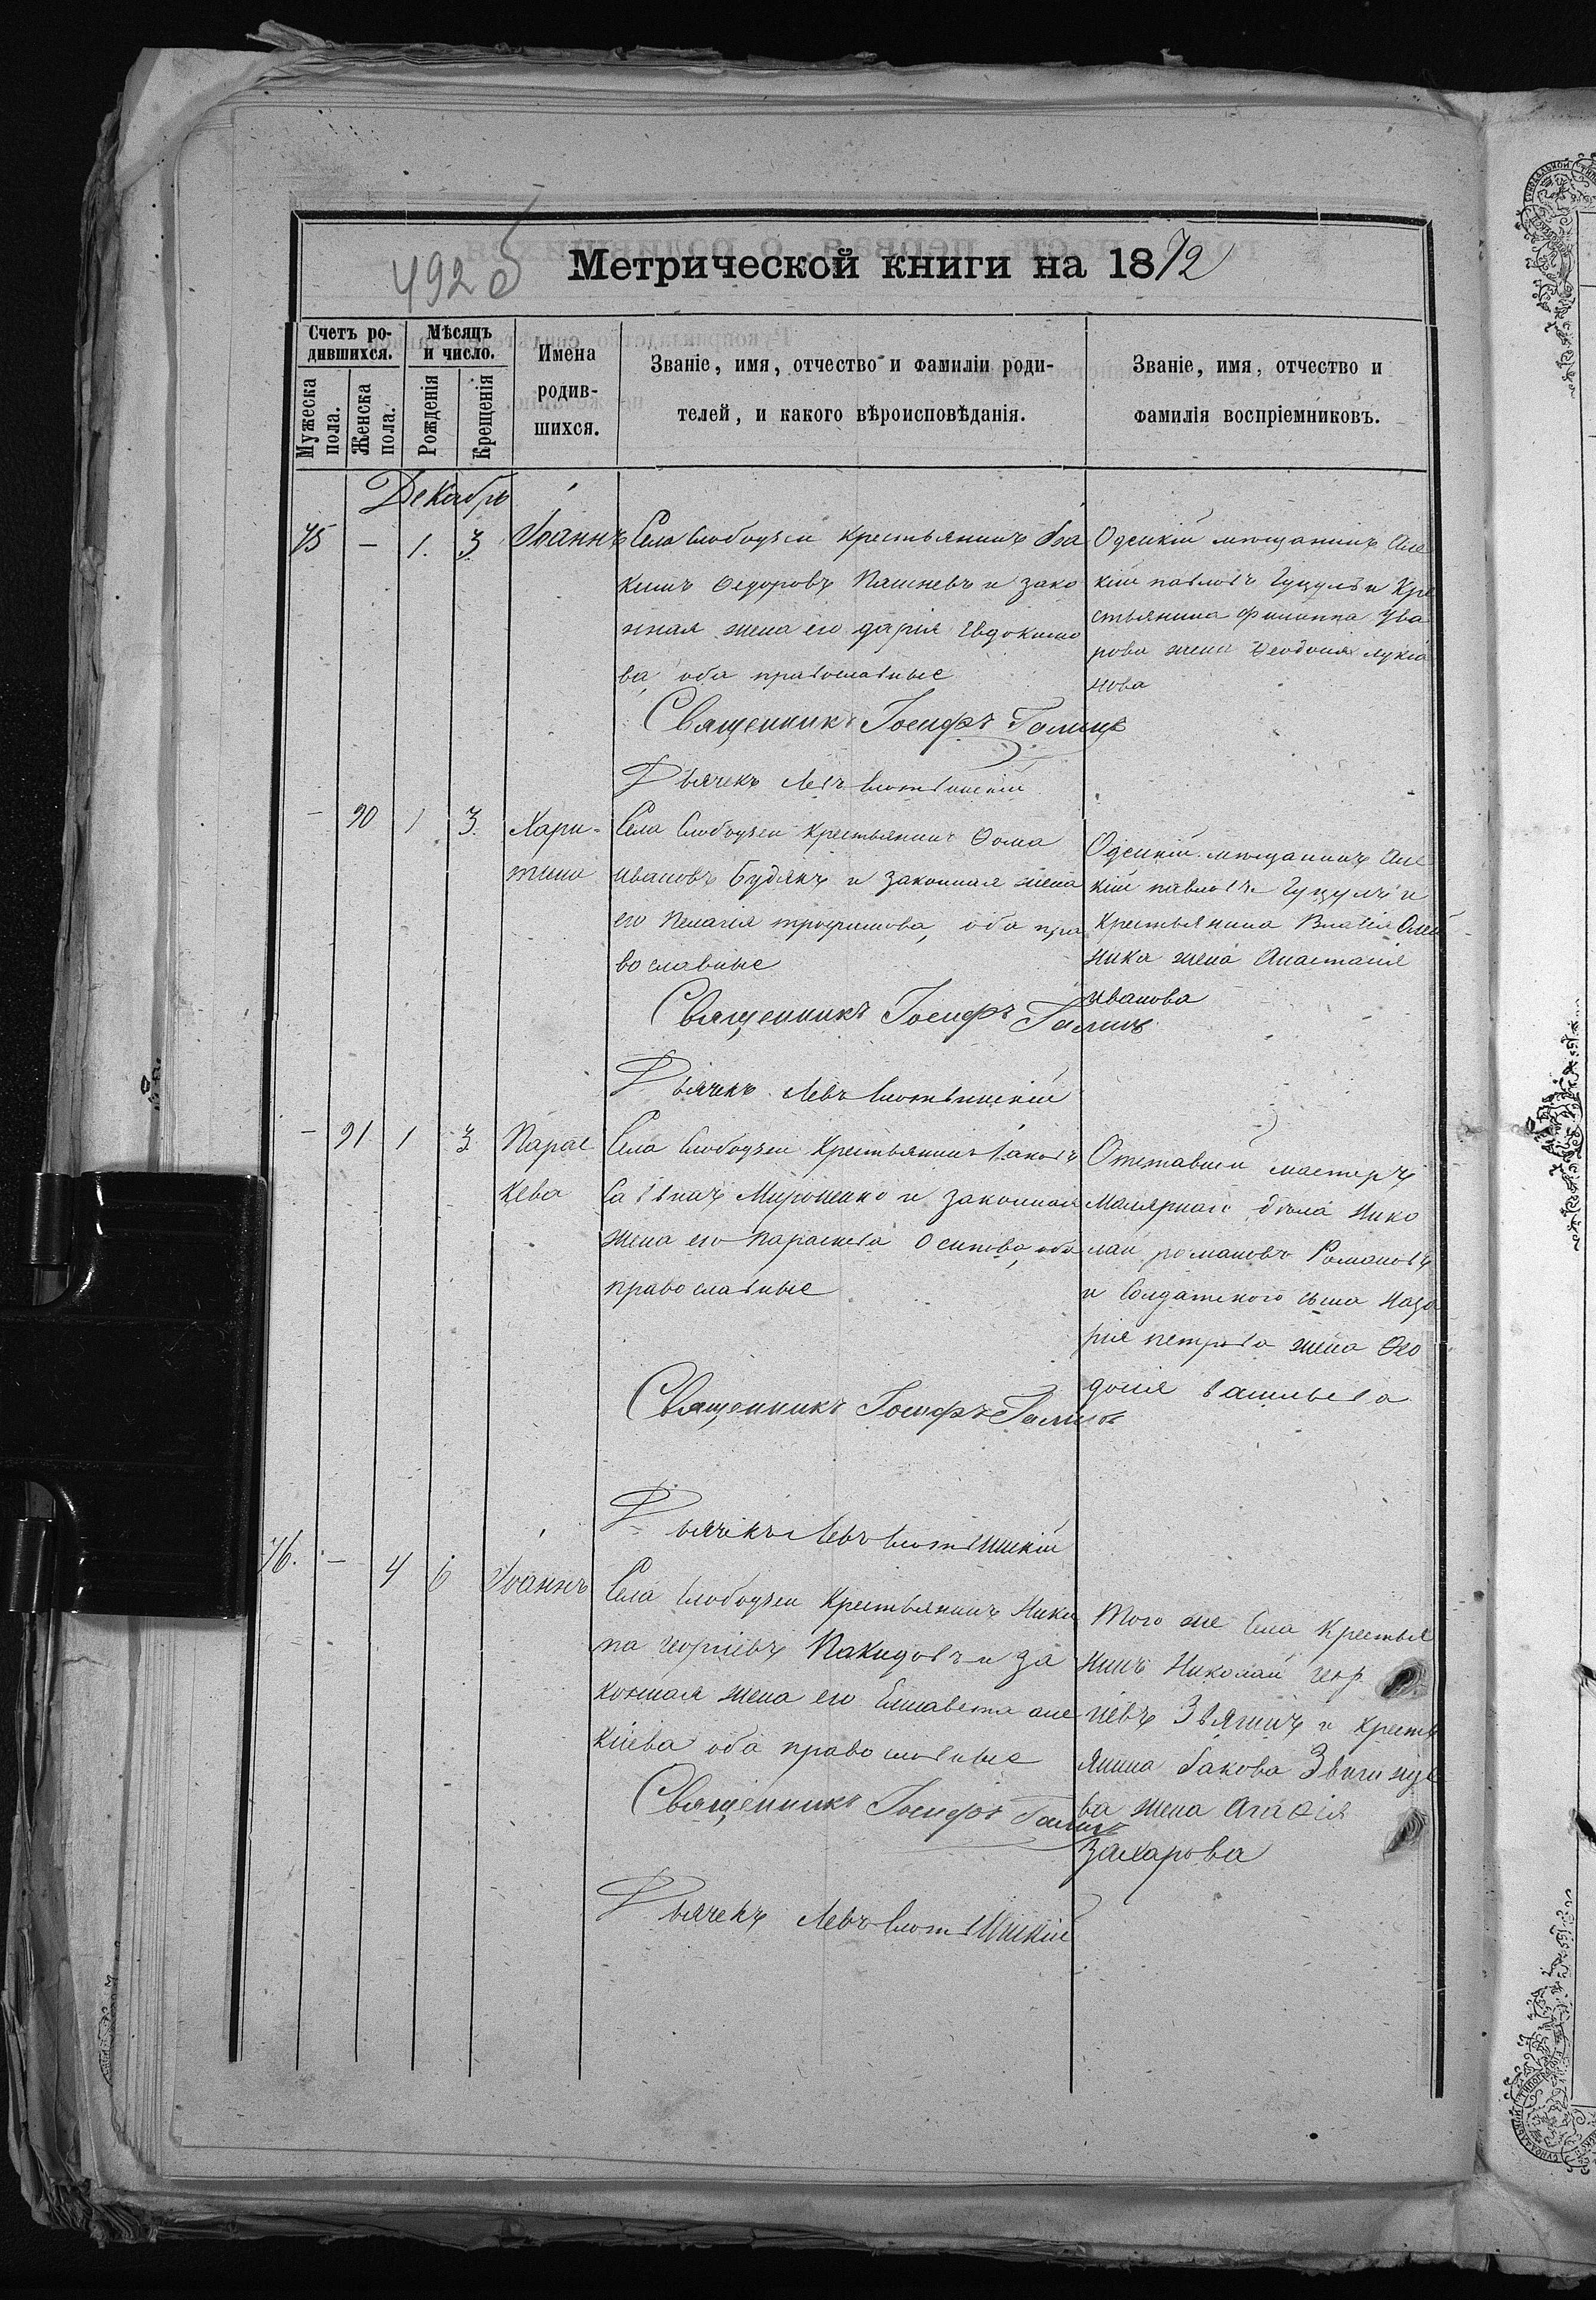 492 б
Метрической книги на 1872
Счетъ ро-
дившихся.
Мѣсяцъ
и число.
Мужеска
пола.
Женска
пола.
Рожденія
Крещенія
Имена
родив-
шихся.
Званіе, имя, отчество и фамиліи роди-
телей, и какого вѣроисповѣданія.
Званіе, имя, отчество и
фамилія воспріемниковъ.
Декабрь
75 — 1. 3 Іоаннъ
Села Слободзеи крестьянинъ Іоа
кимъ Федоровъ и зако
нная жена его дарія Евдокимо
ва, оба православные
Священникъ Іосифъ
Дьячекъ Левъ
Одескій мещанинъ Але
кій павловъ Гуцулъ и Кре
стьянина Филиппа Ува
рова жена Феодосія лукіа
нова
— 90 1 3. Хари-
тина
Села Слободзеи Крестьянинъ Фома
ивановъ Будякъ и законная жена
его Пелагія трофимова, оба пра
вославные
Священникъ Іосифъ
Дьячекъ Левъ
Одескій мещанинъ Але
кій павловъ Гуцулъ и
Крестьянина Власія Олей
ника жена Анастасія
иванова
— 91 1 3 Парас
кева
Села Слободзеи Крестьянинъ Іаковъ
Саввинъ Мироненко и законная
жена его Параскева Осипова, оба
православные
Священникъ Іосифъ
Дьячекъ Левъ
Отставный мастеръ
Малярнаго дѣла Нико
лай романовъ Романовъ
и Солдатского сына Наза
рія петрова жена Фео
досія васильева
76. — 4 6 Іоаннъ
Села Слободзеи Крестьянинъ Ники
та георгіевъ и за
конная жена его Елисавета але
кіева оба православные
Священникъ Іосифъ
Дьячекъ Левъ
Того же Села Крестья
нинъ Николай геор
гіевъ Звягинъ и Кресть
янина Іакова
ва жена Агафія
Захарова